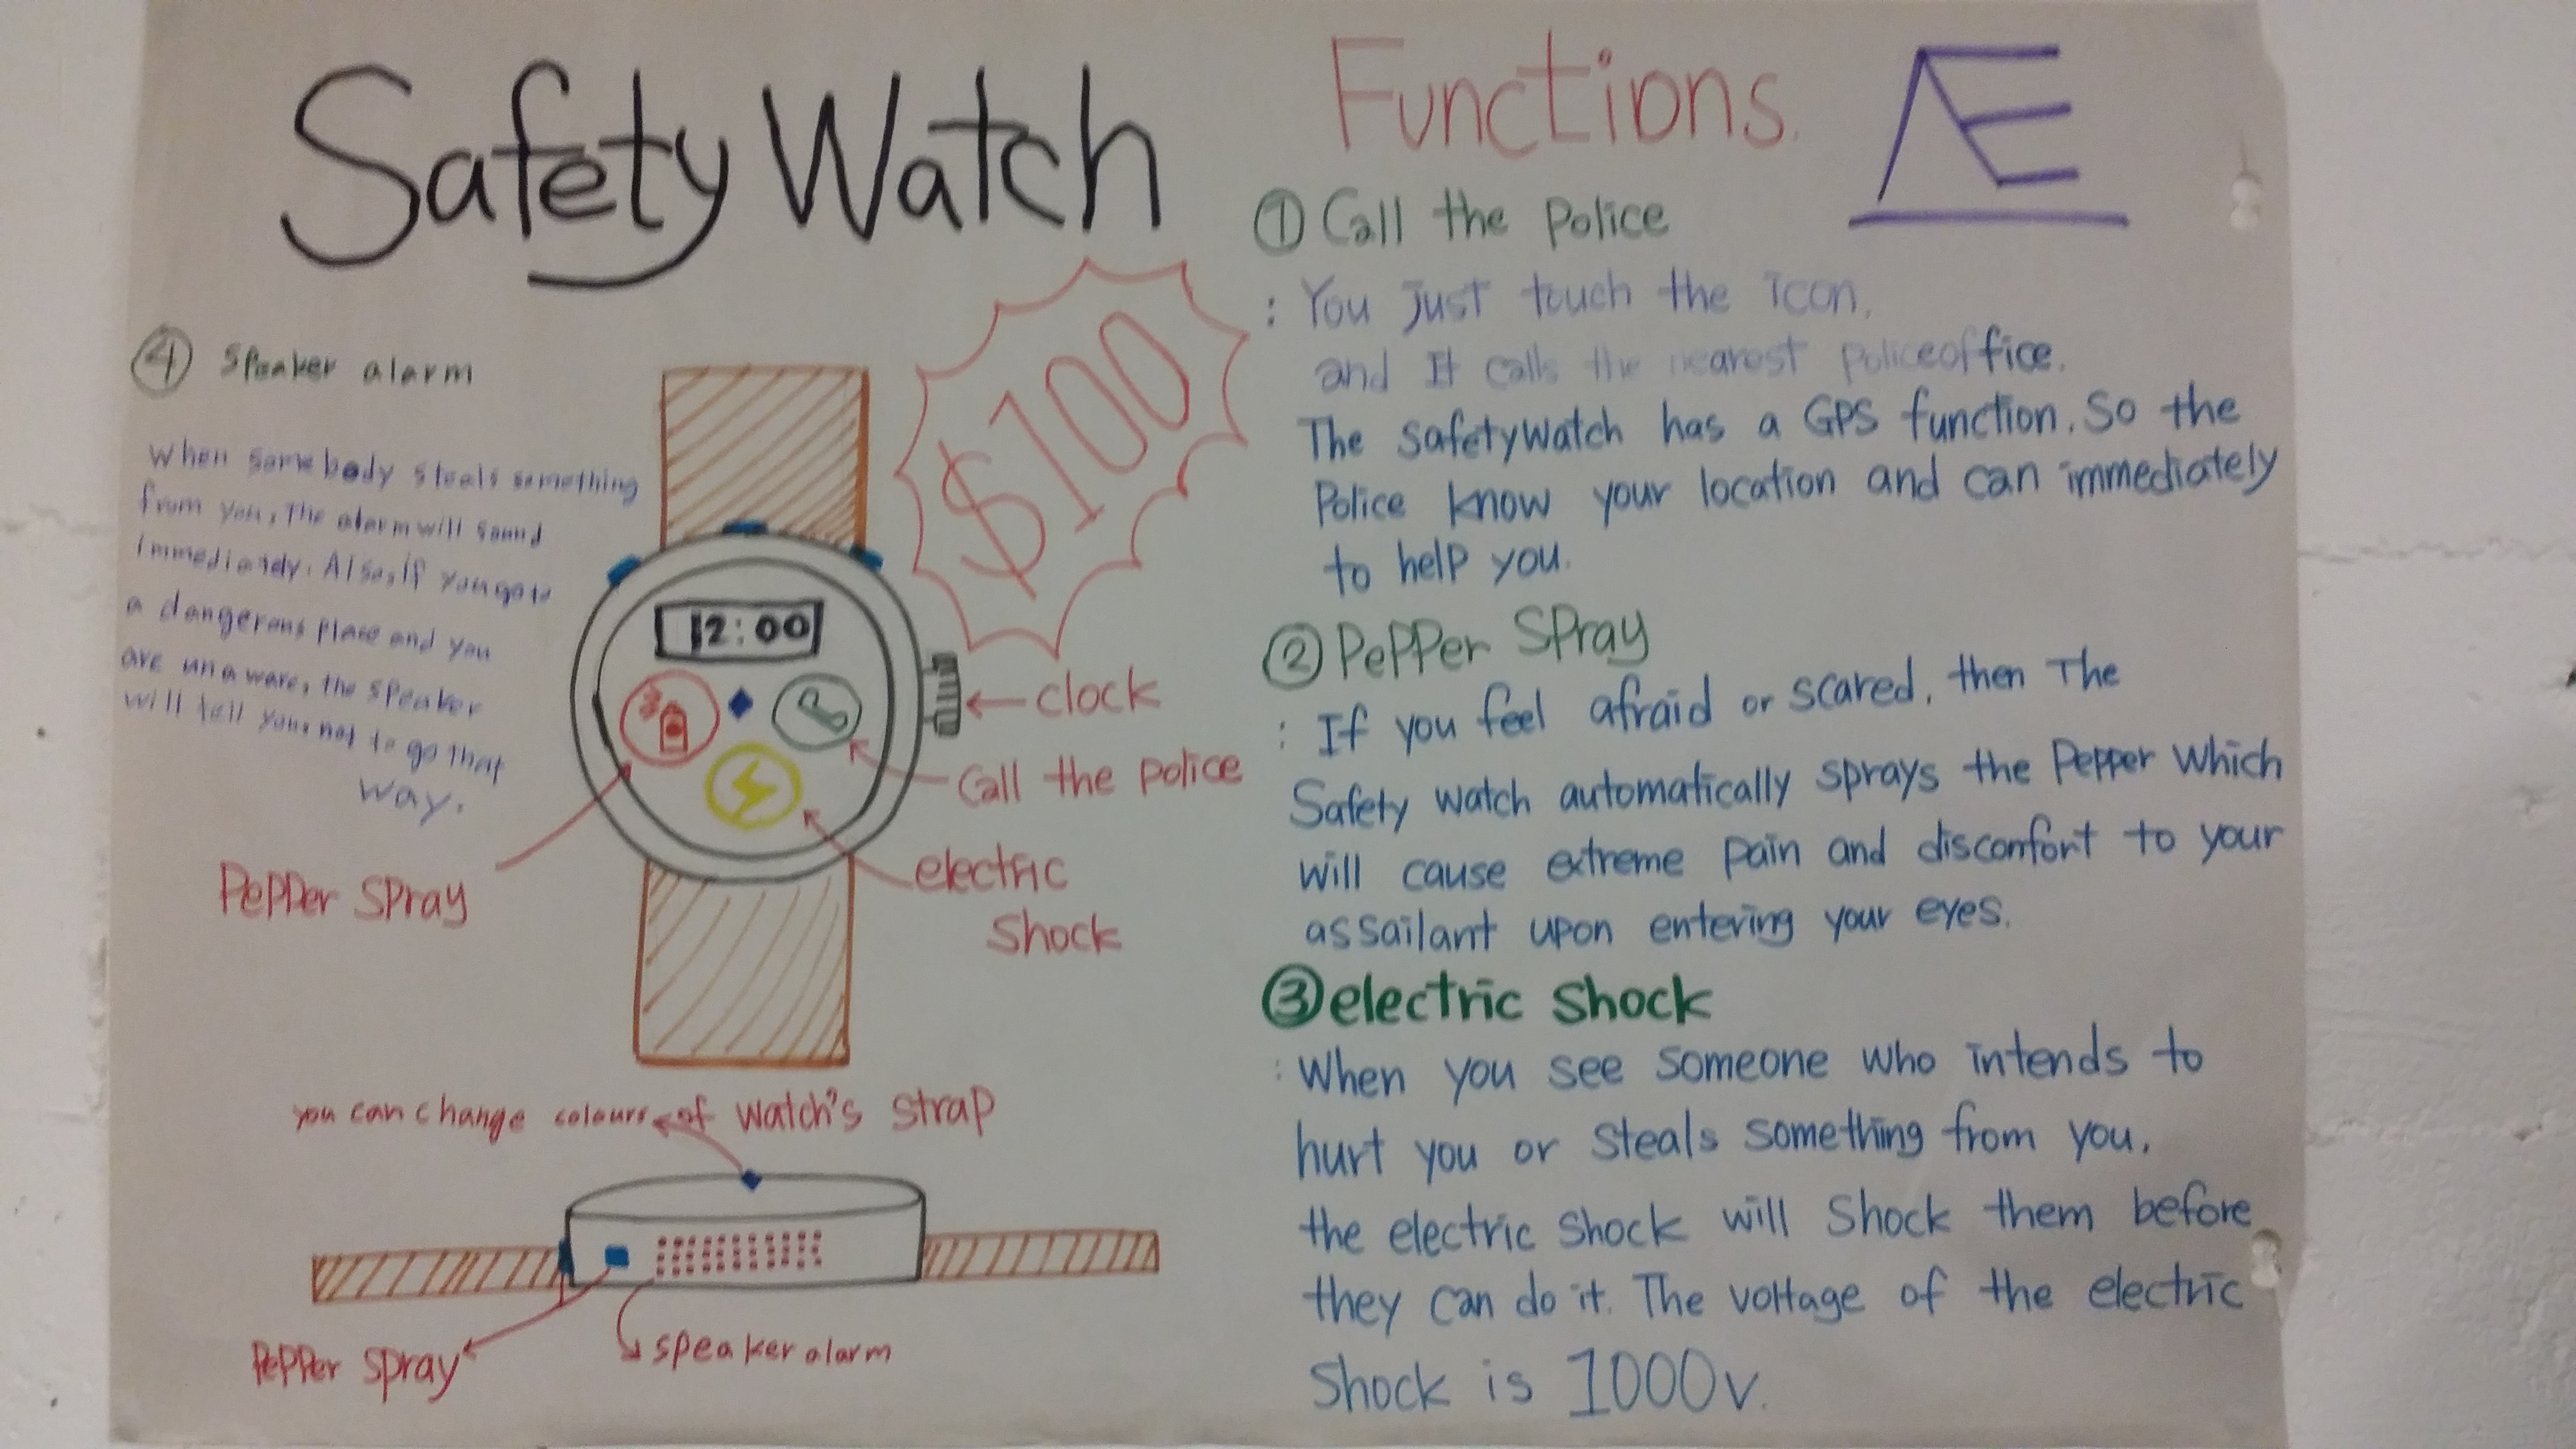 Safety Watch
④ Speaker alarm
When somebody steals something
from you, The alarm will sound
immediately. Also, if you go to
a dangerous place and you
are unaware, the speaker
will tell you, not to go that
way.
$100
12:00
clock
Call the police
electric
shock
Pepper spray
you can change colours of watch's strap
Pepper spray
speaker alarm
Functions.
AE
① Call the police
: You just touch the icon,
and It calls the nearest policeoffice.
The safetywatch has a GPS function. So the
Police know your location and can immediately
to help you.
② Pepper spray
: If you feel afraid or scared, then The
Safety watch automatically sprays the Pepper which
will cause extreme pain and discomfort to your
assailant upon entering your eyes.
③ electric shock
: When you see someone who intends to
hurt you or steals something from you.
the electric shock will shock them before
they can do it. The voltage of the electric
shock is 1000v.